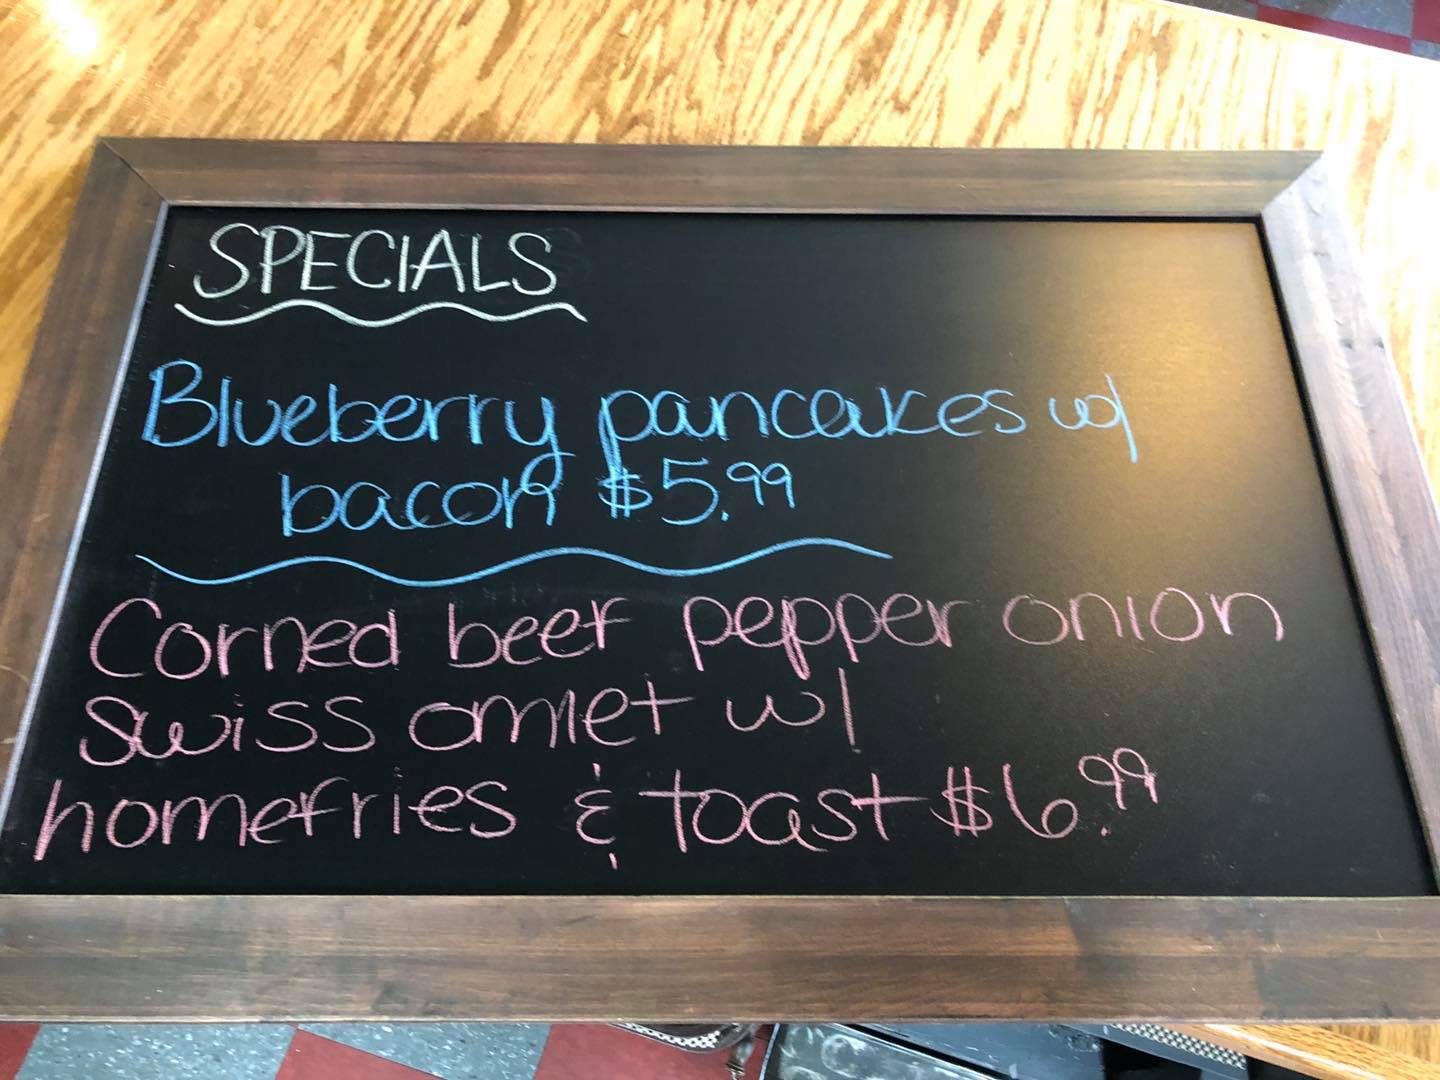 SPECIALS
Blueberry pancakes w/
bacon $5.99
Corned beef pepper onion
swiss omlet w/
homefries & toast $6.99